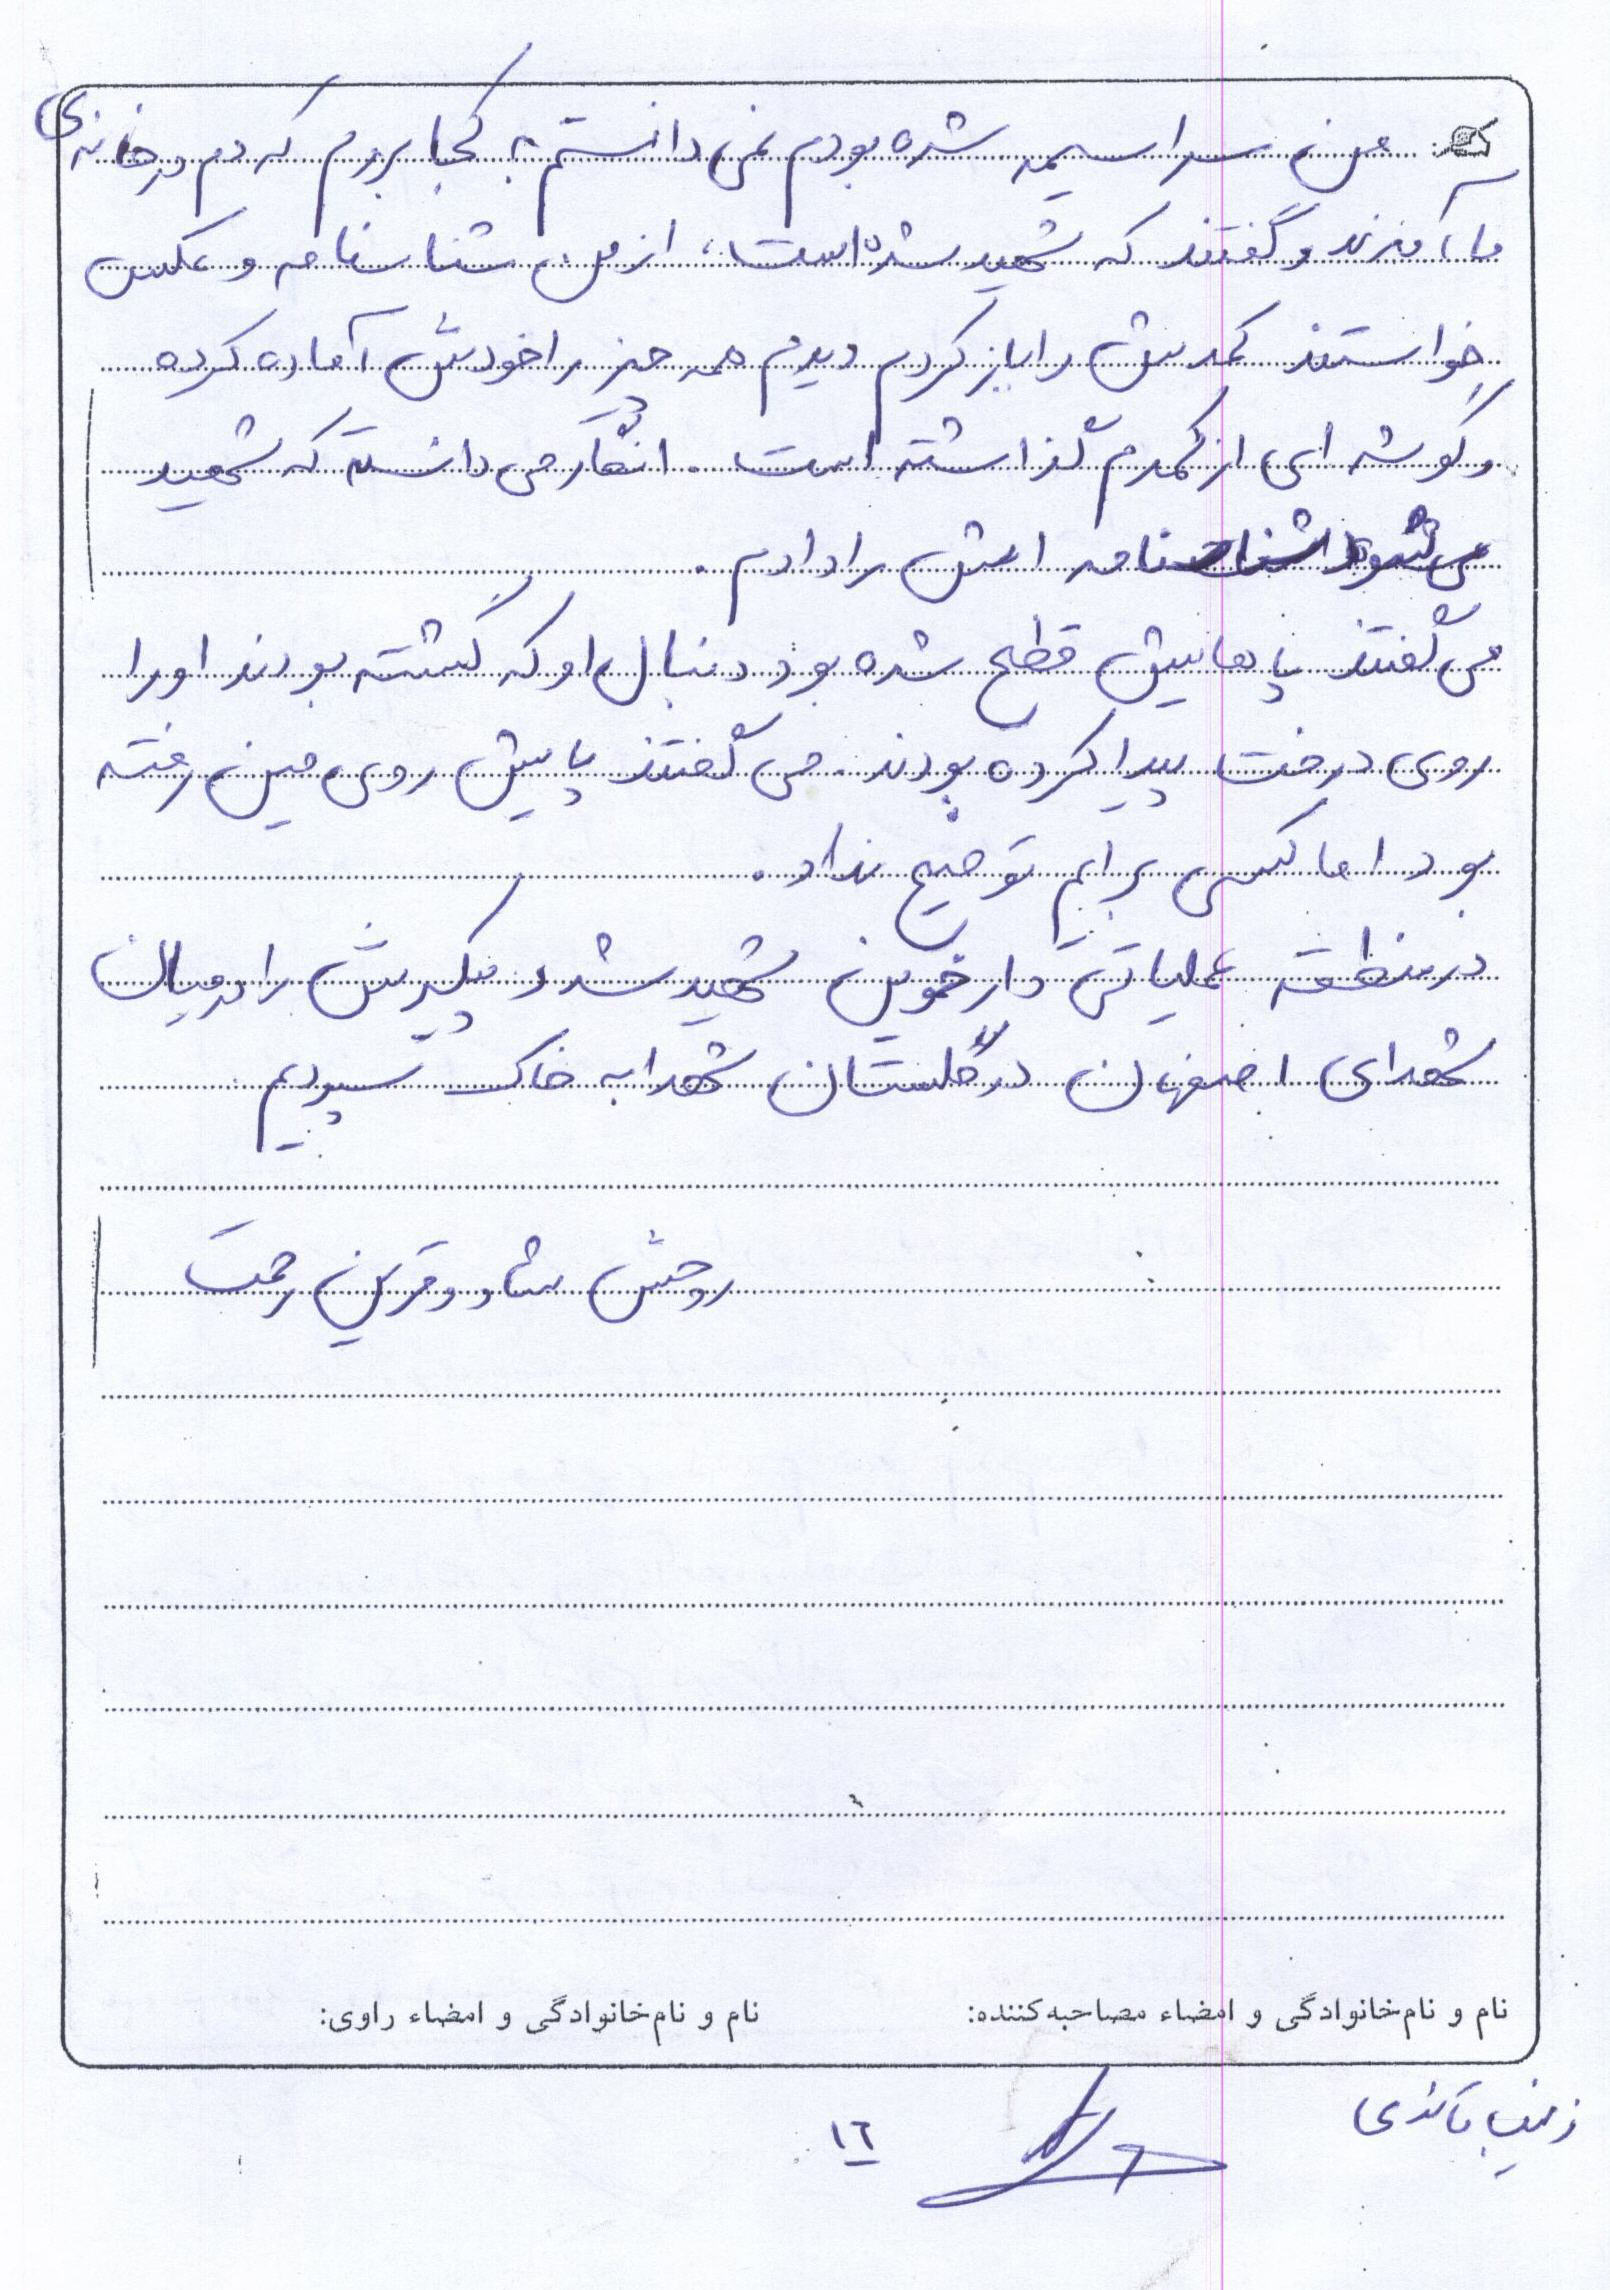 من سراسیمه شده بودم نمی دانستم به کجا بروم که دم در خانه ی
ما آمدند و گفتند که شهید شده است، از من شناسنامه و عکس
خواستند کمدش را باز کردم دیدم همه چیز را خودش آماده کرده
و گوشه ای از کمدم گذاشته است. انگار می دانسته که شهید
می شود شناسنامه اش را دادم.
می گفتند پاهایش قطع شده بود دنبال او که گشته بودند او را
روی درخت پیدا کرده بودند. می گفتند پایش روی مین رفته
بود اما کسی برایم توضیح نداد.
در منطقه عملیاتی دارخوین شهید شد و پیکرش را در میان
شهدای اصفهان در گلستان شهدا به خاک سپردیم
روحش شاد و قرین رحمت
نام و نام‌خانوادگی و امضاء مصاحبه‌کننده:
نام و نام‌خانوادگی و امضاء راوی:
زینب
۱۶